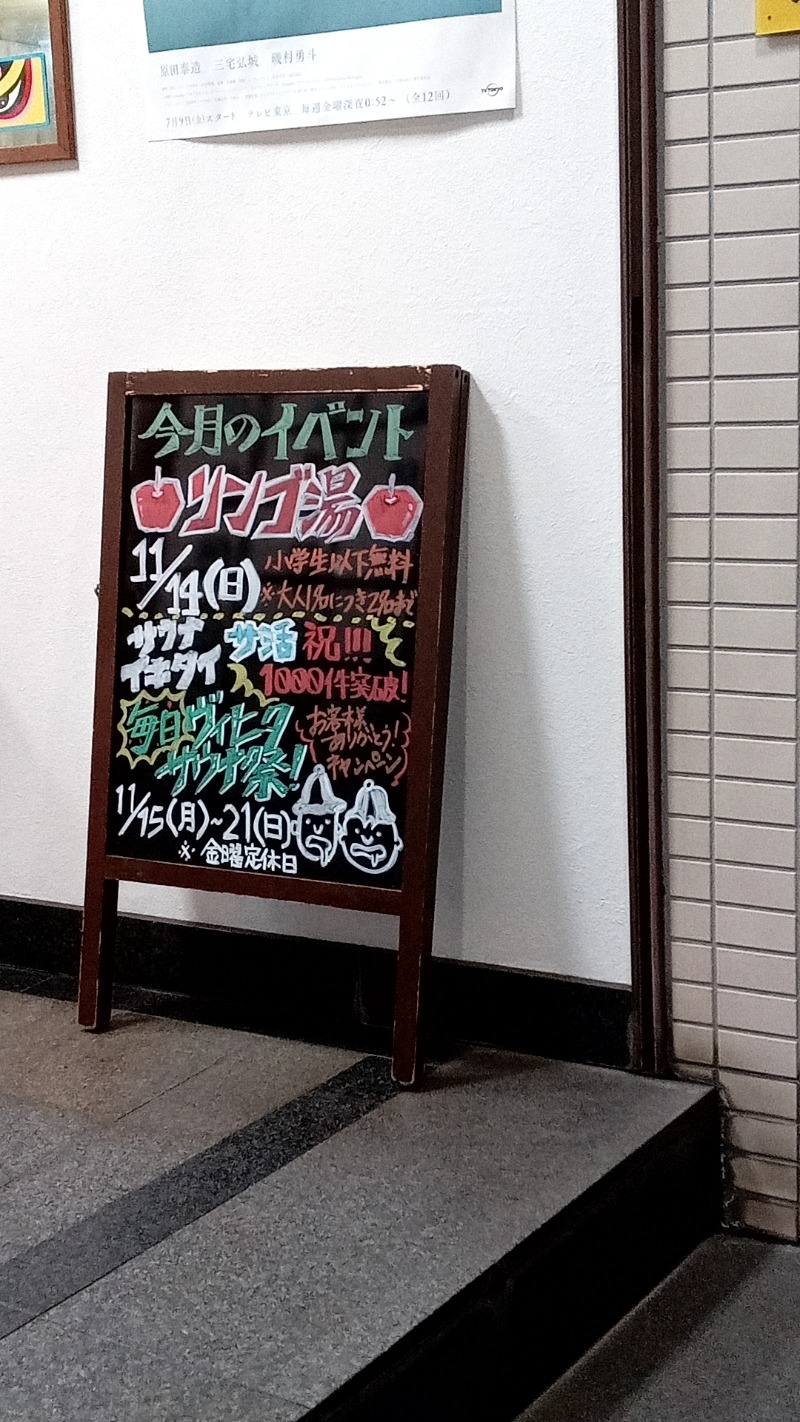 原田泰造 三宅弘城 磯村勇斗
7月9日(金)スタート テレビ東京 毎週金曜深夜0:52~ (全12回)
TV TOKYO
今月のイベント
リンゴ湯
11/14(日)
小学生以下無料
※大人1名につき2名まで
サウナ
イキタイ
サ活
祝!!!
1000件突破!
毎日ヴィヒタ
サウナ祭!
お客様
ありがとう!
キャンペーン
11/15(月)~21(日)
※金曜定休日